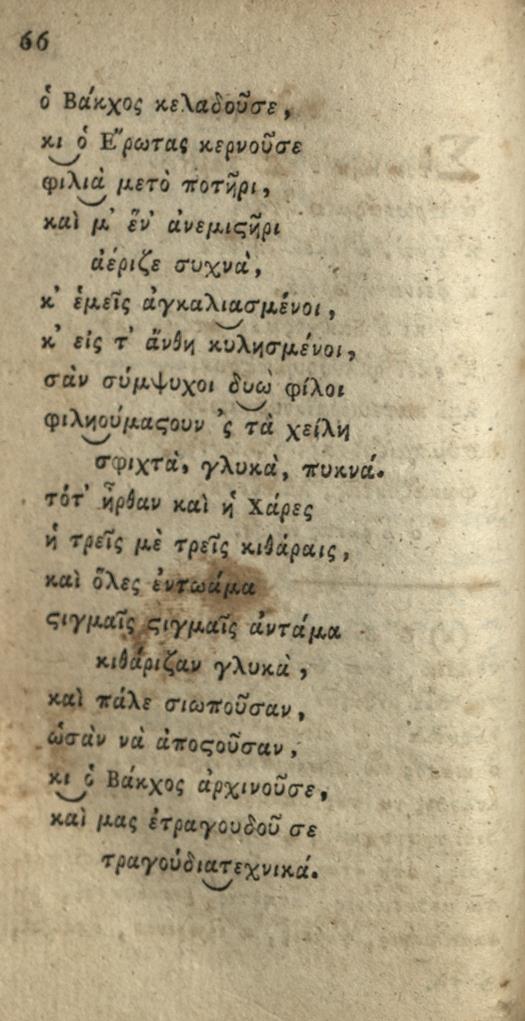 66
ὁ Βάκχος κελαδοῦσε,
κι ὁ Ἔρωτας κερνοῦσε
φιλιὰ μετὸ ποτῆρι,
καὶ μ' ἕν' ἀνεμιϛῆρι
ἀέριζε συχνὰ,
κ' ἐμεῖς ἀγκαλιασμένοι,
κ' εἰς τ' ἄνθη κυλησμένοι,
σὰν σύμψυχοι δυὼ φίλοι
φιληούμαϛουν 'ς τὰ χείλη
σφιχτὰ, γλυκὰ, πυκνά.
τότ' ἦρθαν καὶ ἡ Χάρες
ἡ τρεῖς μὲ τρεῖς κιθάραις,
καὶ ὅλες ἐντωάμα
ϛιγμαῖς ϛιγμαῖς ἀντάμα
κιθάριζαν γλυκὰ,
καὶ πάλε σιωποῦσαν,
ὡσὰν νὰ ἀποϛοῦσαν,
κι ὁ Βάκχος ἀρχινοῦσε,
καὶ μας ἐτραγουδοῦ σε
τραγούδιατεχνικά.